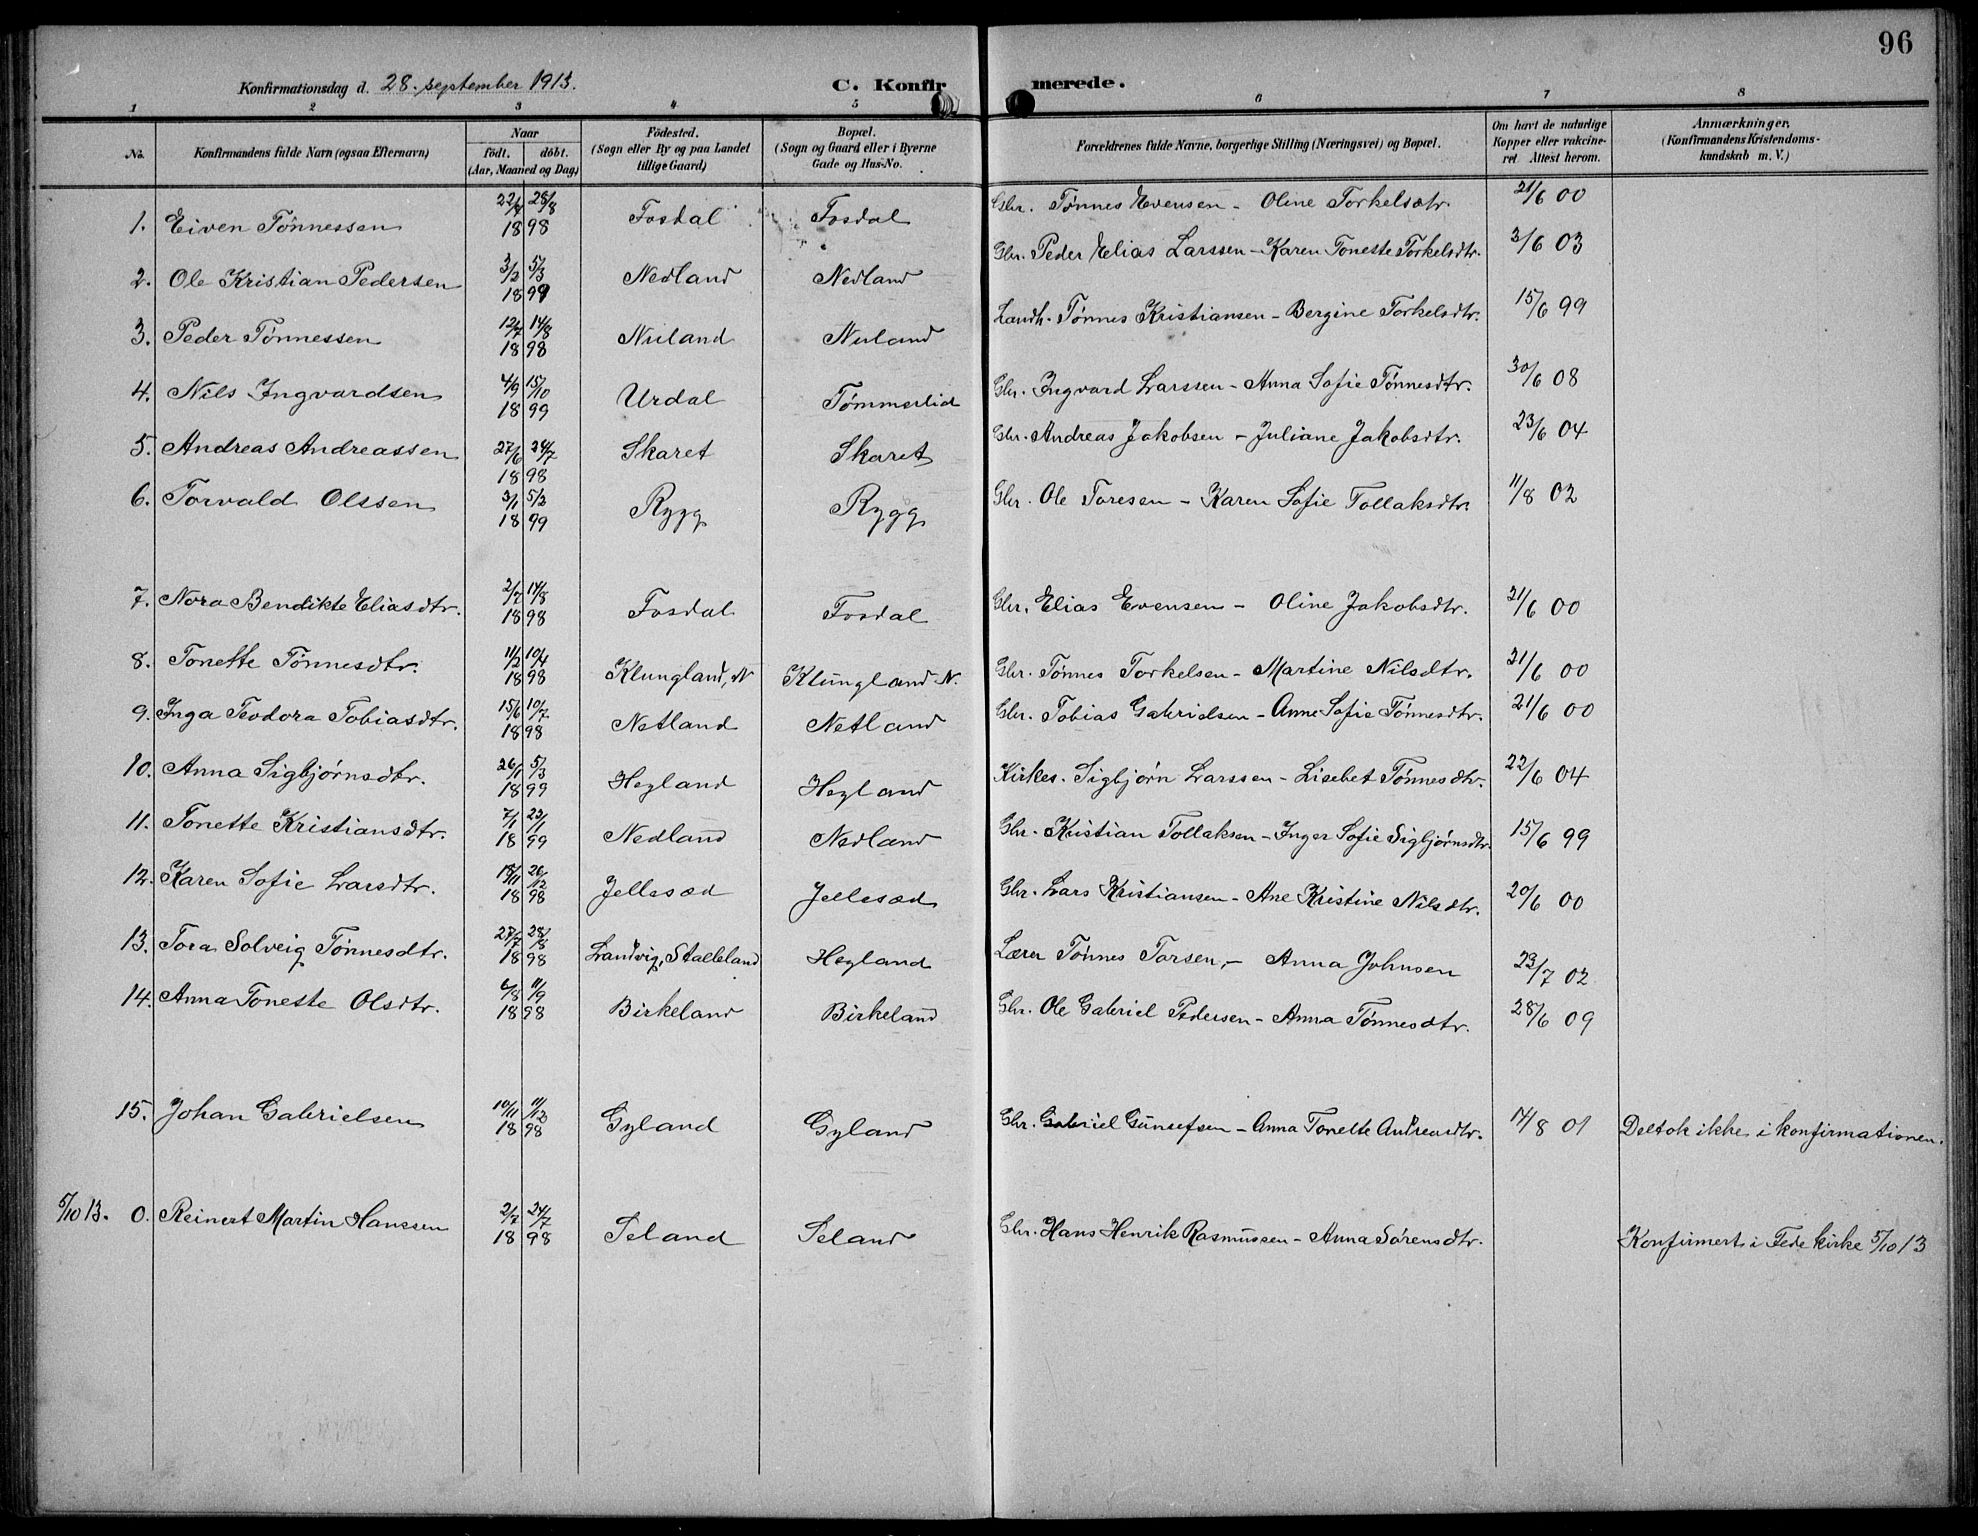 96
Konfirmationsdag d. 28. september 1913. C. Konfirmerede.
1 2 3 4 5 6 7 8
No. Konfirmandens fulde Navn (ogsaa Efternavn) Naar født. døbt. (Aar, Maaned og Dag) Födested. (Sogn eller By og paa Landet tillige Gaard) Bopæl. (Sogn og Gaard eller i Byerne Gade og Hus-No. Forældrenes fulde Navne, borgerlige Stilling (Næringsvei) og Bopæl. Om havt de naturlige Kopper eller vakcineret Attest herom. Anmærkninger, (Konfirmandens Kristendomskundskab m. V.)
1. Eiven Tönnessen 28/8 1898 Fosdal Fosdal Gbr. Tønnes Evensen - Oline Torkelsdtr. 21/6 00
2. Ole Kristian Pedersen 3/2 5/3 1899 Nedland Nedland Gbr. Peder Elias Larssen - Karen Tonette Torkelsdtr. 3/6 03
3. Peder Tønnessen 12/7 14/8 1898 Nuland Nuland Landh. Tønnes Kristiansen - Bergine Torkelsdtr. 15/6 99
4. Nils Ingvardsen 4/9 15/10 1899 Urdal Tömmerlid Gbr. Ingvard Larssen - Anna Sofie Tønnesdtr. 30/6 08
5. Andreas Andreassen 27/6 24/7 1898 Skaret Skaret Gbr. Andreas Jakobsen - Juliane Jakobsdtr. 23/6 04
6. Torvald Olssen 3/1 5/2 1899 Rygg Rygg Gbr. Ole Toresen - Karen Sofie Tollaksdtr. 11/8 02
7. Nora Bendikte Eliasdtr. 2/7 14/8 1898 Fosdal Fosdal Gbr. Elias Evensen - Oline Jakobsdtr. 21/6 00
8. Tonette Tönnesdtr. 11/2 10/4 1898 Klungland, N Klungland N. Gbr. Tønnes Torkelsen - Martine Nilsdtr. 21/6 00
9. Inga Teodora Tobiasdtr. 15/6 10/7 1898 Netland Netland Gbr. Tobias Gabrielsen - Anne Sofie Tønnesdtr. 21/6 00
10. Anna Sigbjørnsdtr. 26/1 5/3 1899 Hegland Hegland Kirkes. Sigbjørn Larssen - Lisebet Tønnesdtr. 22/6 04
11. Tonette Kristiansdtr. 7/1 23/1 1899 Nedland Nedland Gbr. Kristian Tollaksen - Inger Sofie Sigbjørnsdtr. 15/6 99
12. Karen Sofie Larsdtr. 26/12 1898 Jellesæd Jellesæd Gbr. Lars Kristiansen - Ane Kristine Nilsdtr. 20/6 00
13. Tora Solveig Tønnesdtr. 27/7 28/8 1898 Landvig, Stalleland Hegland Lærer Tönnes Torsen, - Anna Johnsen 23/7 02
14. Anna Tonette Olsdtr. 6/8 11/9 1898 Birkeland Birkeland Gbr. Ole Gabriel Pedersen - Anna Tønnesdtr. 28/6 09
15. Johan Gabrielsen 10/11 11/12 1898 Gyland Gyland Gbr. Gabriel Gunsefsen - Anna Tonette Andreasdtr. 14/8 01 Deltok ikke i konfirmationen.
5/10 13. 0. Reinert Martin Hanssen 2/7 24/7 1898 Seland Seland Gbr. Hans Henrik Rasmussen - Anna Sörensdtr. Konfirmert i Fede kirke 5/10 13